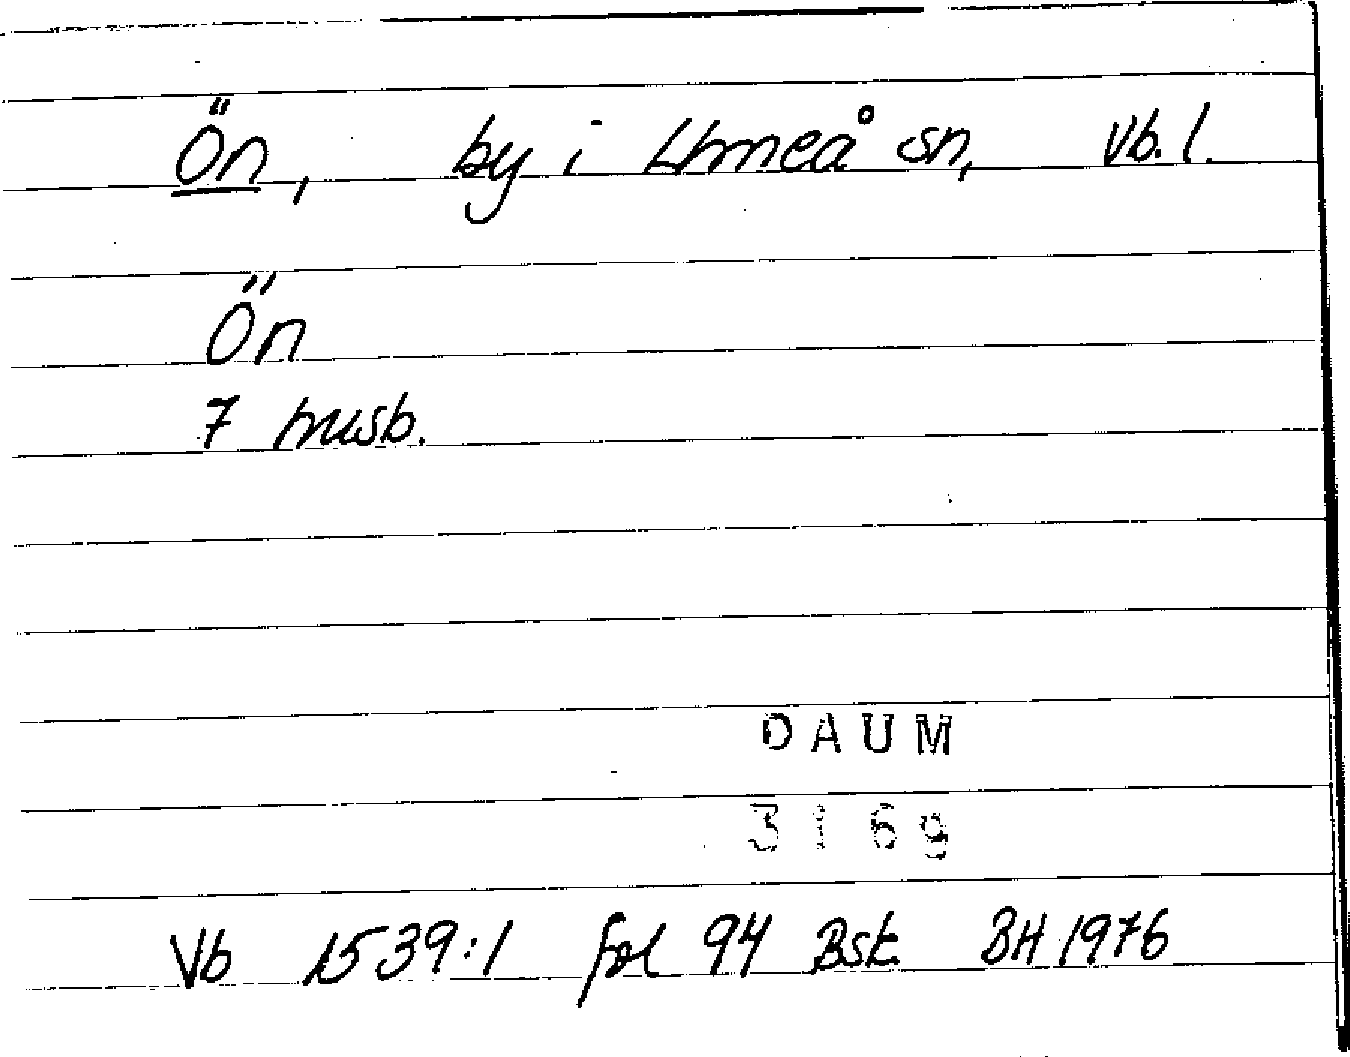 Ön, by i Umeå sn, Vb. l.
Ön
7 husb.
DAUM
3169
Vb 1539:1 fol 94 Bsk BH 1976